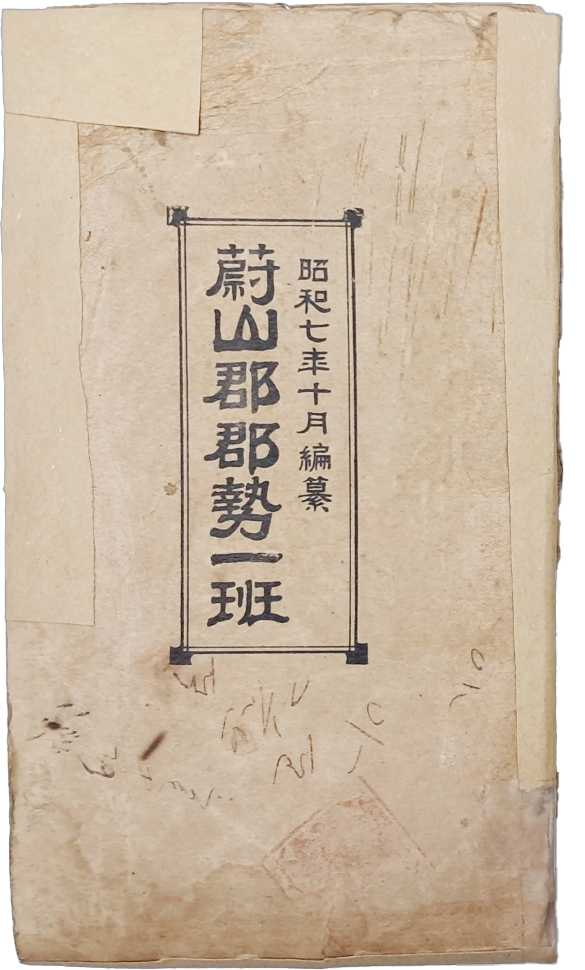 昭和七年十月編纂
蔚山郡郡勢一班